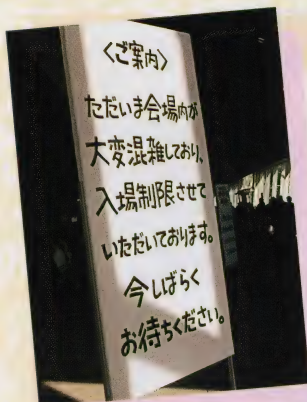 〈ご案内〉
ただいま会場内が
大変混雑しており、
入場制限させて
いただいております。
今しばらく
お待ちください。